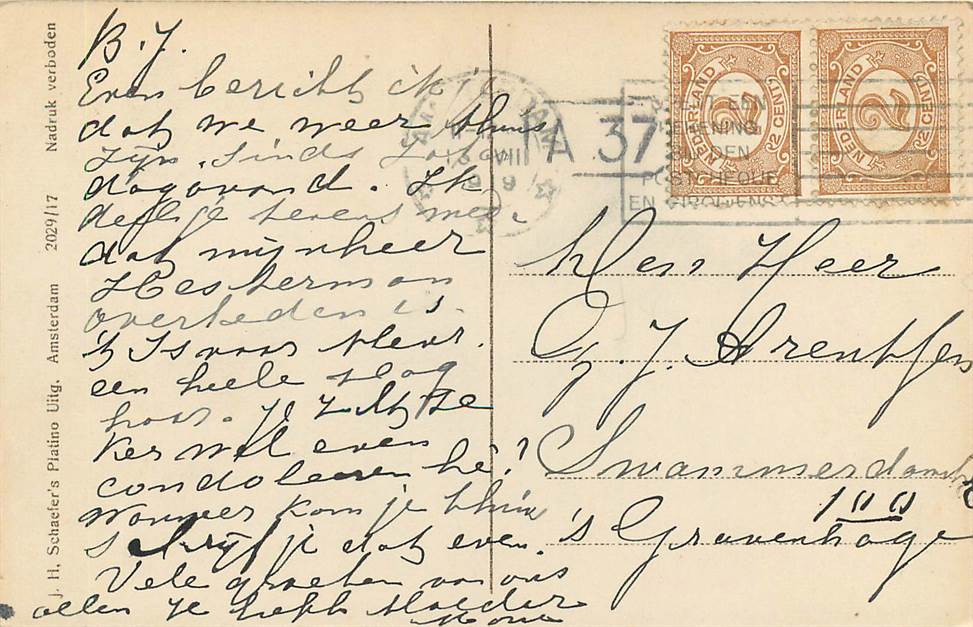 B. J.
Even bericht ik
dat we weer thuis
zijn. Sinds
dagavond. Ik
deel je tevens mee
dat mijnheer
Hesterman
overleden is.
't Is voor Mevr.
een heele slag
hoor. Je zult ze
ker wel even
condoleeren hè?
Wanneer kom je thuis
schrijf je dat even.
Vele groeten van ons
allen je liefh Moeder
Den Heer
G. J. Arentsen
Swammerdamstr
100
's Gravenhage
NEDERLAND
2
2 CENT 2
NEDERLAND
2
2 CENT 2
AMSTERDAM
VIII
A 37
VRAAGT EEN
REKENING
BIJ DEN
POSTCHEQUE
EN GIRODIENST
J. H. Schaefer's Platino Uitg. Amsterdam 2029/17 Nadruk verboden